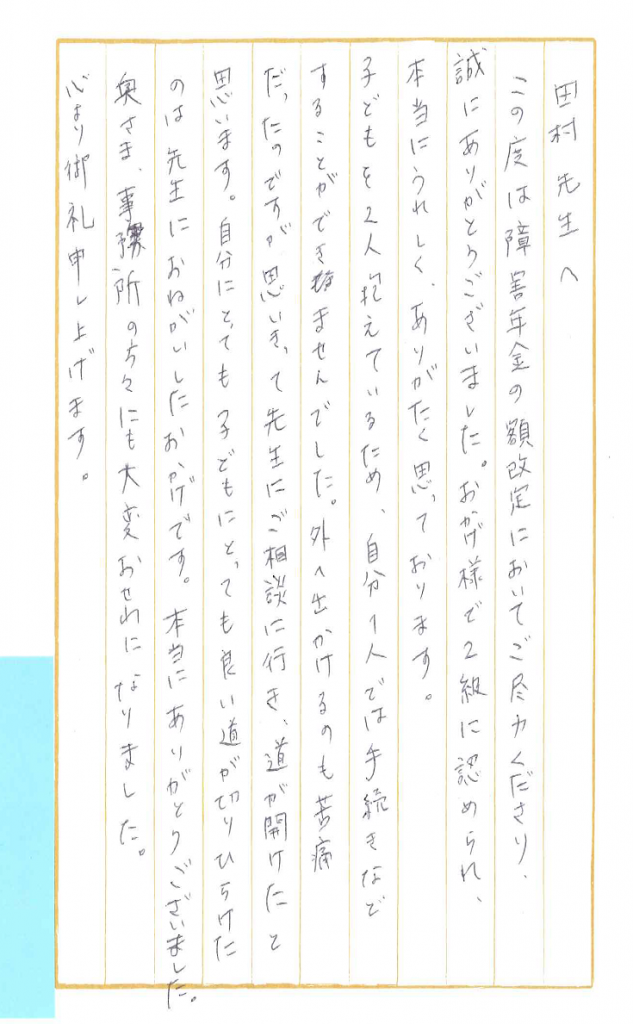 田村先生へ
この度は障害年金の額改定においてご尽力くださり、
誠にありがとうございました。おかげ様で2級に認められ、
本当にうれしく、ありがたく思っております。
子どもを2人抱えているため、自分1人では手続きなど
することができませんでした。外へ出かけるのも苦痛
だったのですが思いきって先生にご相談に行き、道が開けたと
思います。自分にとっても子どもにとっても良い道が切りひらけた
のは先生におねがいしたおかげです。本当にありがとうございました。
奥さま、事務所の方々にも大変おせわになりました。
心より御礼申し上げます。